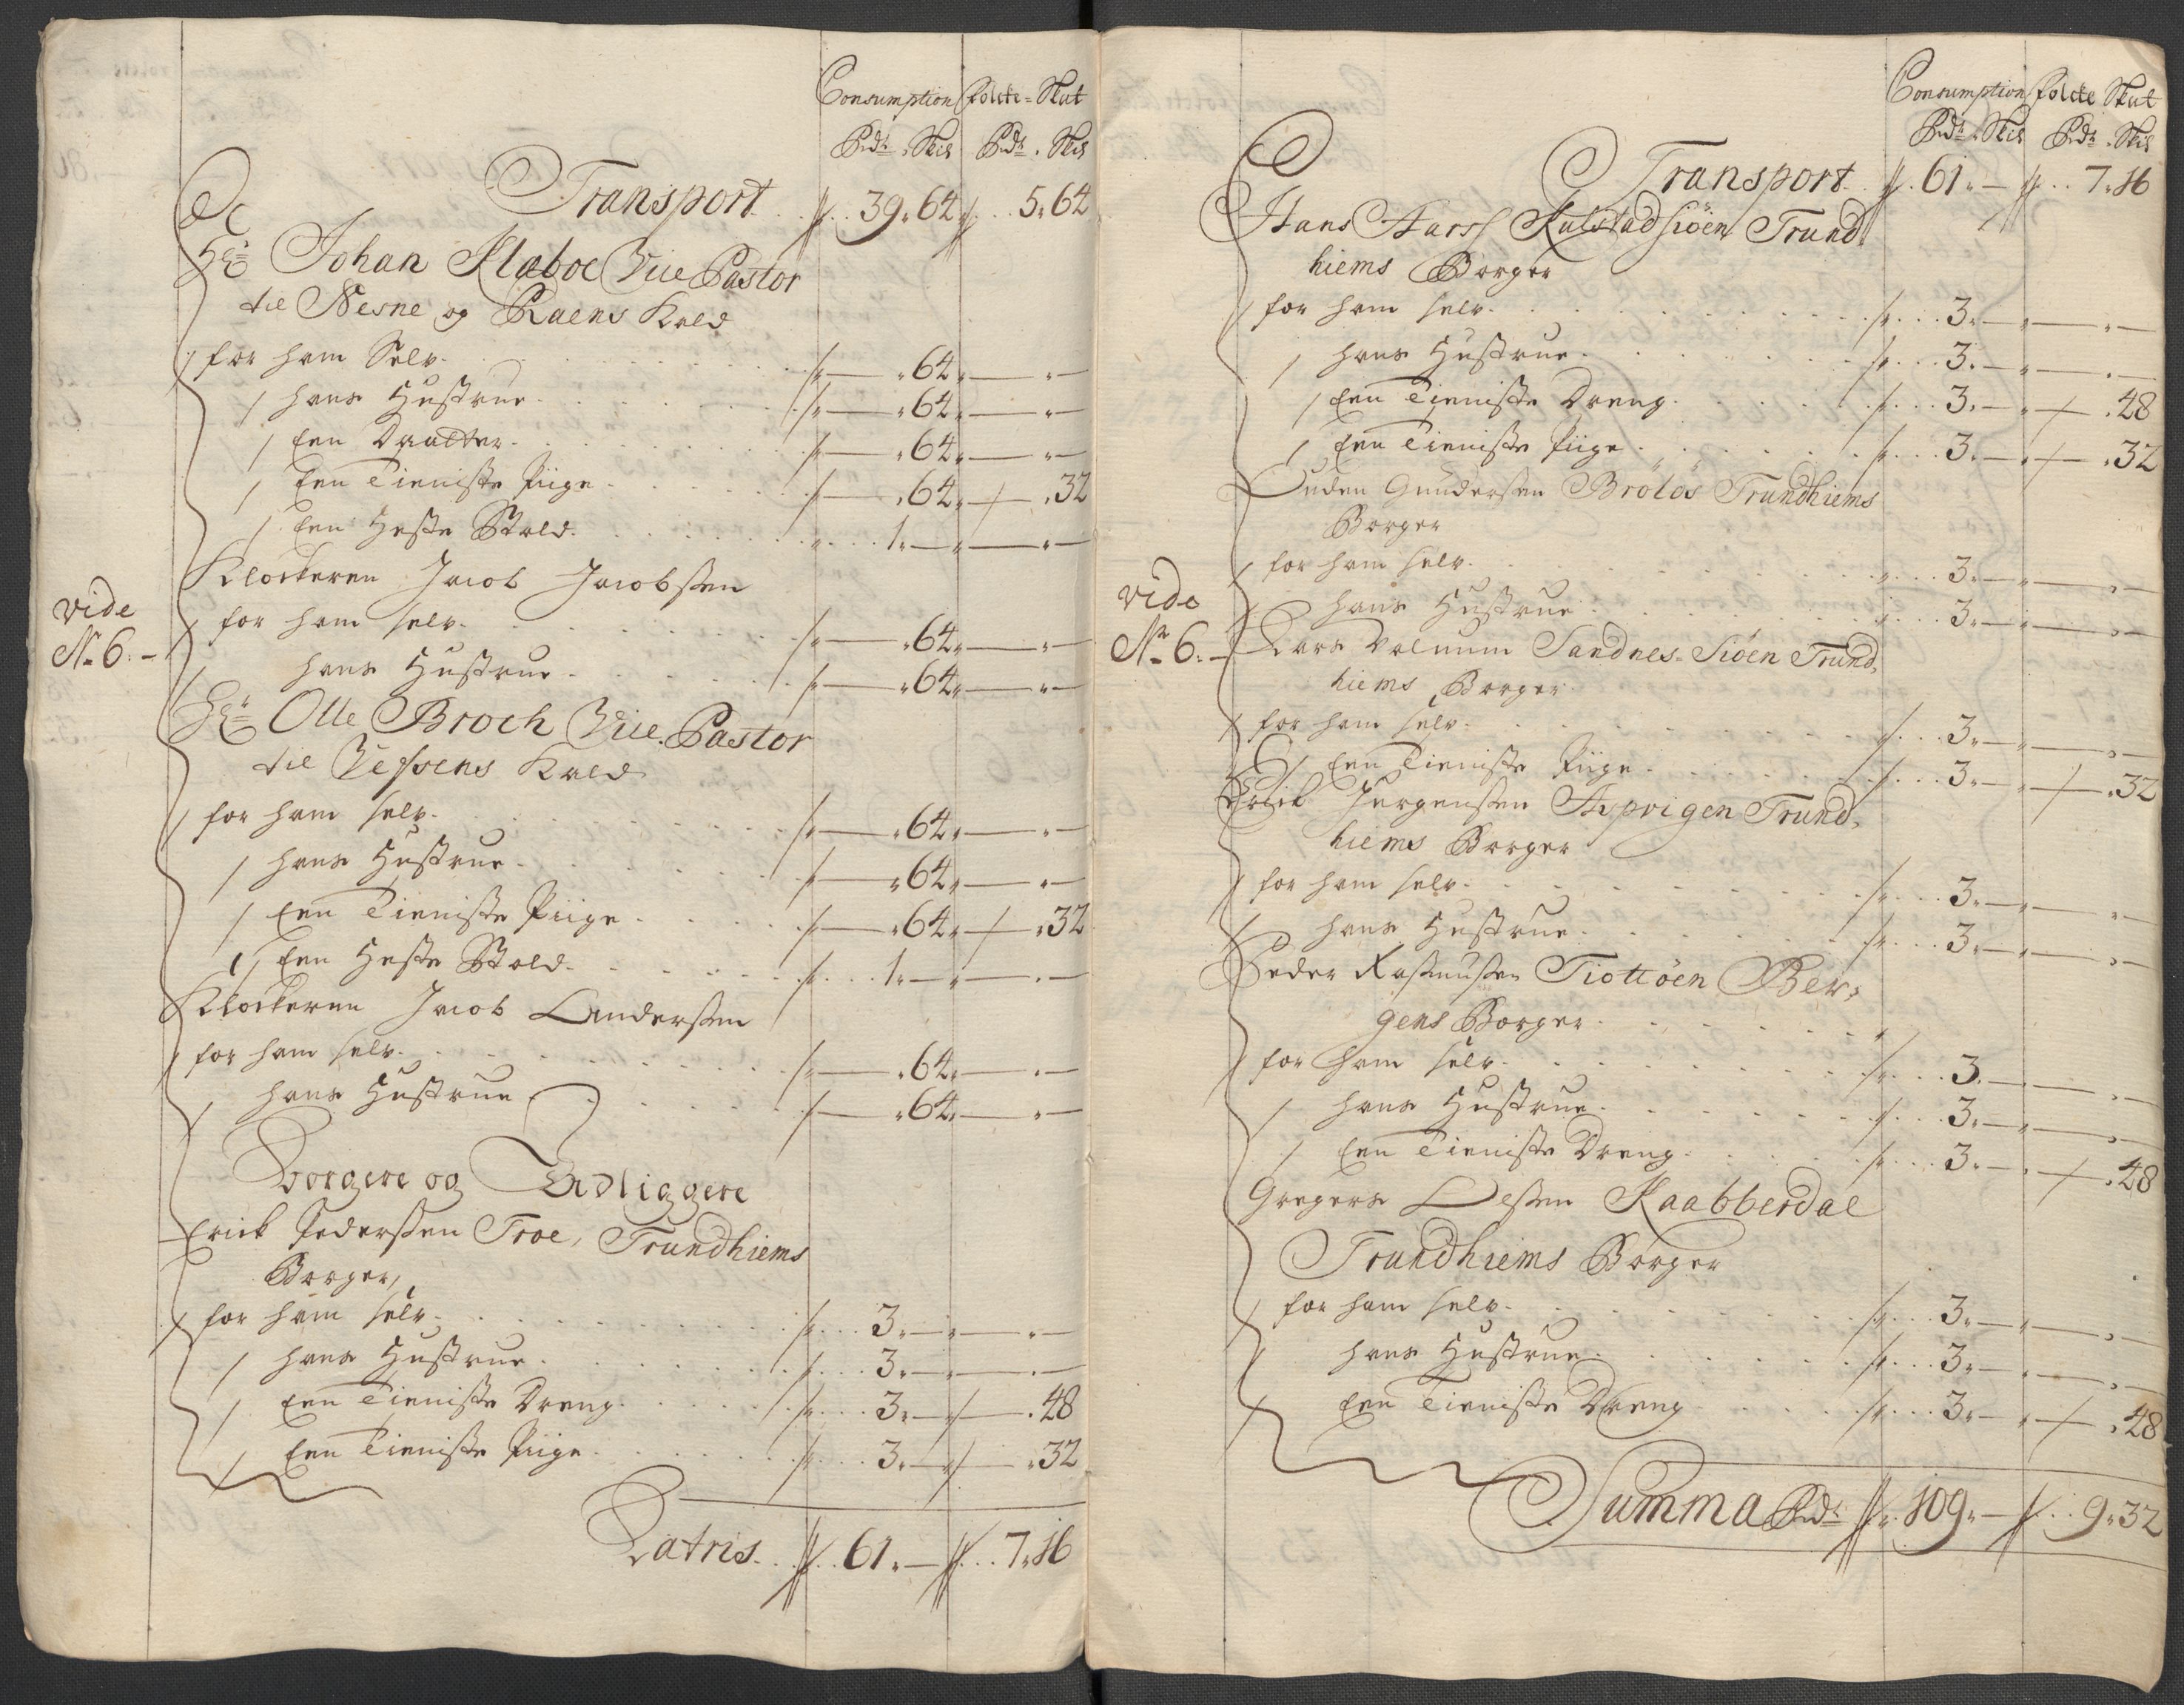 Consumption Folcke-Skat
Rdr. Skil Rdr. Skil
Transport 39. 64 5. 64
Hr Johan Klaboe Vice Pastor
til Nesne og Raens Kald
for ham Selv 64
1 hans Hustrue 64
1 Een Daatter 64
1 Een Tieniste Piige 64 32
1 Een Heste Stald 1
Klockeren Jacob Jacobsen
for ham selv 64
hans Hustrue 64
vide
No 6.
Hr Olle Broch Vice Pastor
til Vefsens Kald
for ham selv 64
1 hans Hustrue 64
1 Een Tieniste Piige 64 32
1 Een Heste Stald 1
Klockeren Jacob Andersen
for ham selv 64
1 hans Hustrue 64
Borgere og Udliggere
Erick Pedersen Troe, Trundhiems
Borger,
for ham selv 3
1 hans Hustrue 3
1 Een Tieniste Dreng 3 48
1 Een Tieniste Piige 3 32
Latris 61 7. 16
Consumption Folcke Skat
Rdr. Skil Rdr. Skil
Transport 61 7. 16
Hans Kulstadsiöen Trund-
hiems Borger
for ham selv 3
1 hans Hustrue 3
1 Een Tieniste Dreng 3 48
1 Een Tieniste Piige 3 32
Gundersen Brölös Trundhiems
Borger
for ham selv 3
hans Hustrue 3
vide
No 6.
Lars Sandnes-Siöen Trund-
hiems Borger
for ham selv 3
1 Een Tieniste Piige 3 32
Erick Jørgensen Trund-
hiems Borger
for ham selv 3
hans Hustrue 3
Peder Rasmussen Tiottöen Ber-
gens Borger
for ham selv 3
1 hans Hustrue 3
1 Een Tieniste Dreng 3 48
Gregers Olsen Kaabberdal
Trundhiems Borger
for ham selv 3
hans Hustrue 3
1 Een Tieniste Dreng 3 48
Summa Rdr 109 9. 32